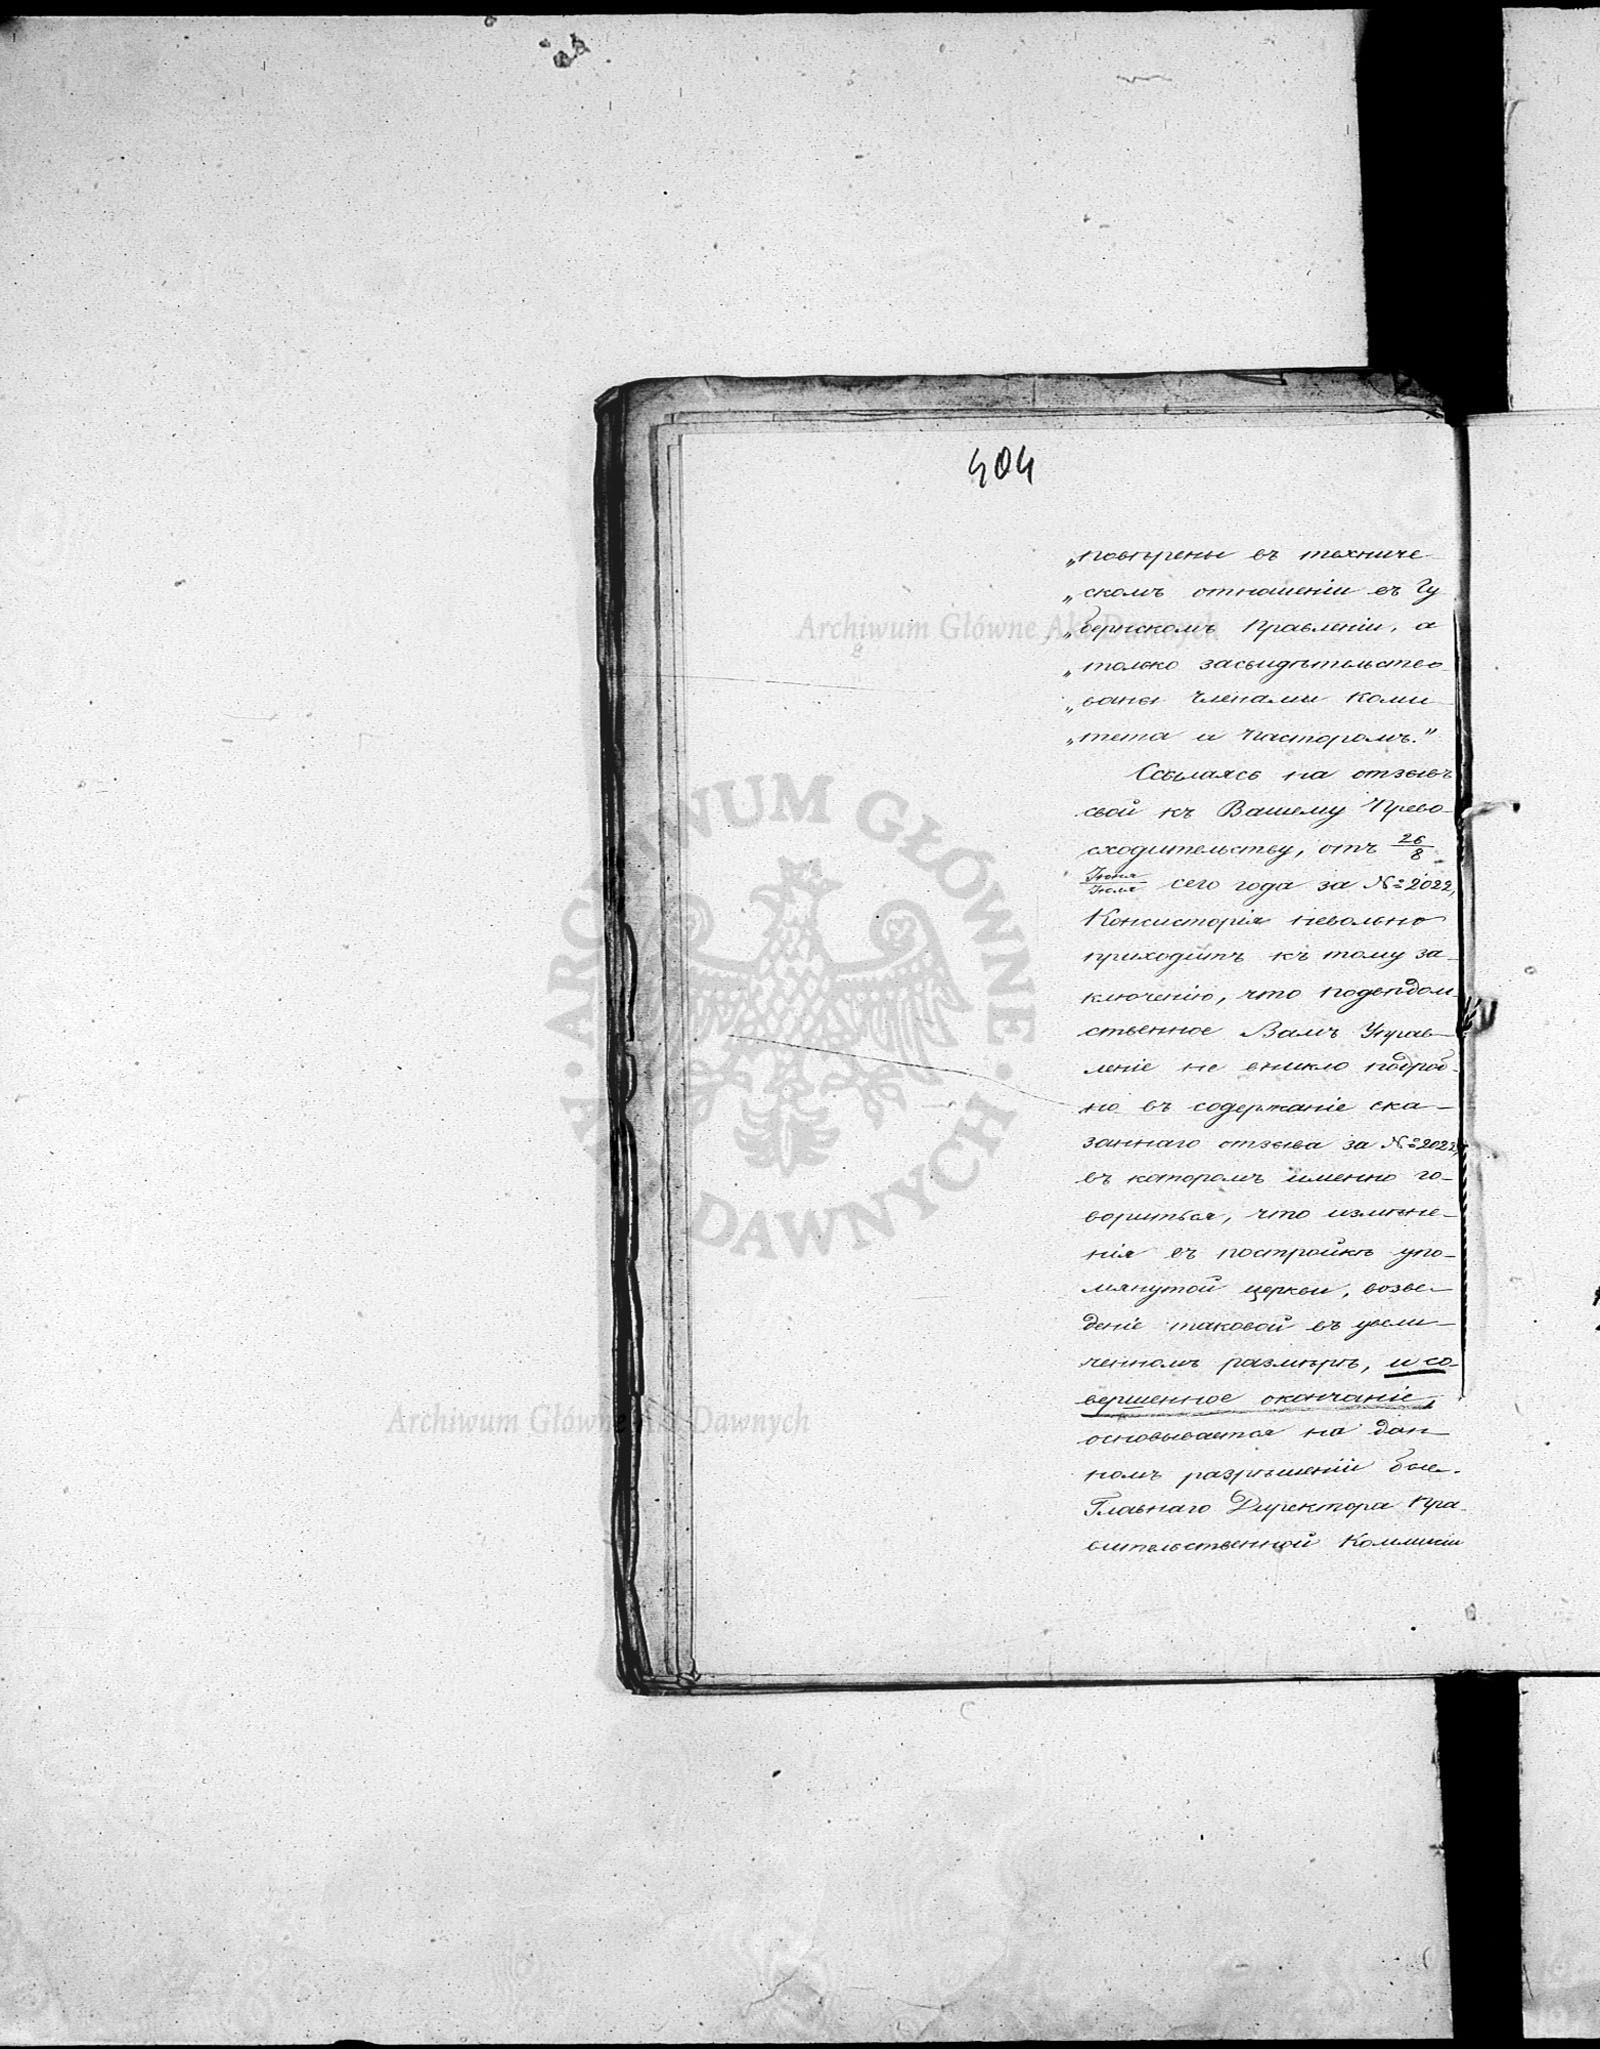 404
„повѣрены въ техниче-
„скомъ отношеніи въ Гу
„бернскомъ Правленіи, а
„только засвидѣтельство-
„ваны Членами Коми-
„тета и Пасторомъ."
Ссылаясь на отзывъ
свой къ Вашему Прево-
сходительству, отъ 26/8
Іюня/Іюля сего года за № 2022,
Консисторія невольно
приходитъ къ тому за-
ключенію, что подвѣдом-
ственное Вамъ Управ-
леніе не вникло подроб-
но въ содержаніе ска-
заннаго отзыва за № 2022,
въ которомъ именно го-
вориться, что измѣне-
нія въ постройкѣ упо-
мянутой церкви, возве-
деніе таковой въ увели-
ченномъ размѣрѣ, и со-
вершенное окончаніе,
основывается на дан-
номъ разрѣшеніи быв.
Главнаго Директора Пра-
вительственной Коммисіи
ARCHIWUM GŁÓWNE AKT DAWNYCH
Archiwum Główne Akt Dawnych
Archiwum Główne Akt Dawnych